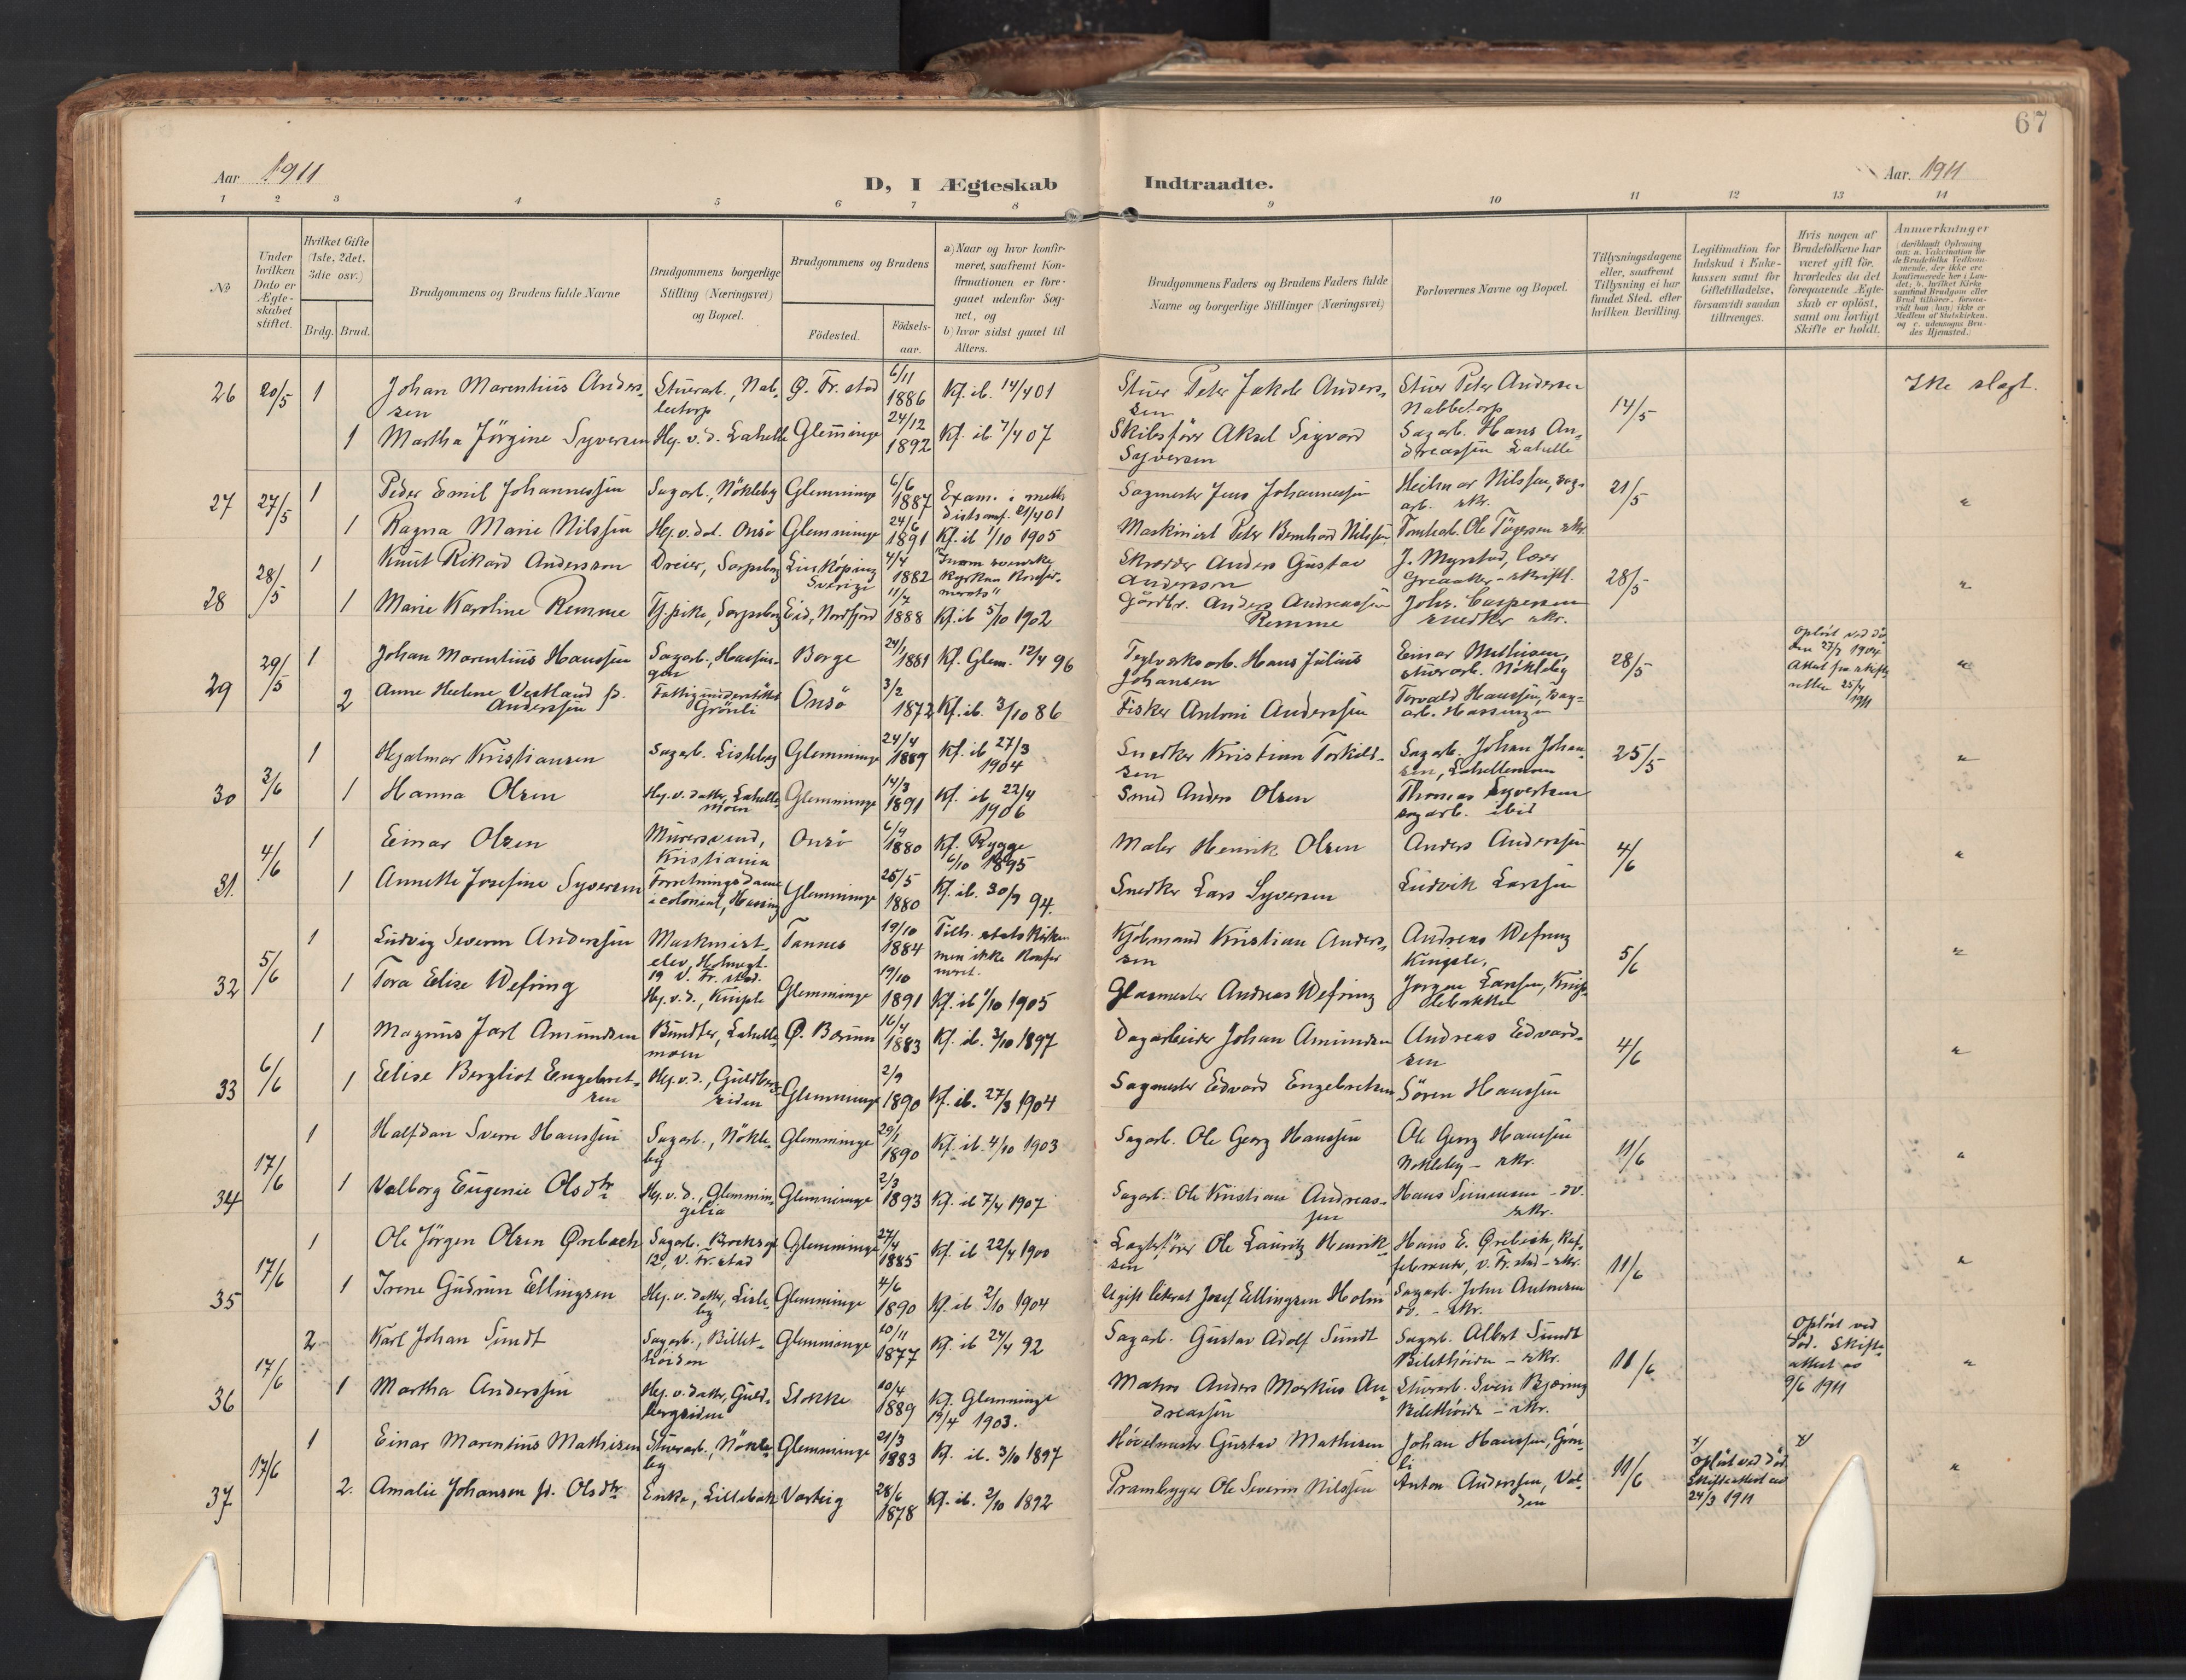 67
Aar 1911
D, I Ægteskab Indtraadte.
Aar. 1911
1 2 3 4 5 6 7 8 9 10 11 12 13 14
No
Under hvilken Dato er Ægteskabet stiftet.
Hvilket Gifte (1ste, 2det, 3die osv.)
Brdg. Brud.
Brudgommens og Brudens fulde Navne
Brudgommens borgerlige Stilling (Næringsvei) og Bopæl.
Brudgommens og Brudens
Födested.
Födsels-aar.
a) Naar og hvor konfirmeret, saafremt Konfirmationen er foregaaet udenfor Sognet, og
b) hvor sidst gaaet til Alters.
Brudgommens Faders og Brudens Faders fulde Navne og borgerlige Stillinger (Næringsvei)
Forlovernes Navne og Bopæl.
Tillysningsdagene eller, saafremt Tillysning ei har fundet Sted, efter hvilken Bevilling.
Legitimation for Indskud i Enkekassen samt for Giftetilladelse, forsaavidt saadan tiltrænges.
Hvis nogen af Brudefolkene har været gift før, hvorledes da det foregaaende Ægteskab er opløst, samt om lovligt Skifte er holdt.
Anmærkninger
26 20/5 1 Johan Marentius Anderssen Stuerarb., Nabbetorp Ø. Fr.stad 6/11 1886 Kf. ib. 14/4 01 Stuer Peter Jakob Anderssen Stuer Peter Andersen Nabbetorp 14/5 Ikke slegt.
1 Martha Jörgine Syversen Hj. v. d. Lahelle Glemminge 24/12 1892 Kf. ib 7/4 07 Skibsförer Aksel Sigvard Syversen Sagarb. Hans Andreassen Lahelle
27 27/5 1 Peder Emil Johannessen Sagarb., Nökleby Glemminge 6/6 1887 Sagmester Jens Johannessen Nilssen, sagarb. skr. 21/5 "
1 Ragna Marie Nilssen Hj. v. dat. Onsö Glemminge 24/6 1891 Kf. ib 1/10 1905 Maskinist Peter Bernhard Nilssen Tomtearb. Ole skr.
28 28/5 1 Knut Rikard Andersson Dreier, Sarpsborg Linköping Sverige 4/4 1882 Inom svenska Kyrkan Konfirmerats" Skrædder Anders Gustav Anderson J. Myrstad, lærer Greaaker - skriftl. 28/5 "
1 Marie Karoline Remme Tj.pike, Sarpsborg Eid, Nordfjord 11/7 1888 Kf. ib 5/10 1902 Gårdbr. Anders Andreassen Remme Johs. Caspersen snedker skr.
29 29/5 1 Johan Marentius Hanssen Sagarb., Hassingen Borge 24/1 1881 Kf. Glem. 12/4 96 Teglverksarb. Hans Julius Johansen Einar Mathisen, stuerarb. Nökleby 28/5 Oplöst ved döden 27/7 1904 Attest fra skifteretten 25/4 1911 "
2 Anne Helene Vestland f. Anderssen Grönli Onsö 3/2 1872 Kf. ib. 3/10 86 Fisker Antoni Anderssen Torvald Hanssen, sagarb. Hassingen
30 3/6 1 Hjalmar Kristiansen Sagarb. Lisleby Glemminge 24/4 1889 Kf. ib 27/3 1904 Snedker Kristian Torkildsen Sagarb. Johan Johansen, Lahellemoen 25/5 "
1 Hanna Olsen Hj. v. datter, Lahellemoen Glemminge 14/3 1891 Kf. ib 22/4 1906 Smed Anders Olsen Thomas Syvertsen sagarb. ibid
31. 4/6 1 Einar Olsen Murersvend, Kristiania Onsö 6/4 1880 Kf. Rygge 6/10 1895 Maler Henrik Olsen Anders Anderssen 4/6 "
1 Annette Josefine Syversen Forretningsdame i colonial, Hassing Glemminge 25/5 1880 Kf. ib. 30/9 94. Snedker Lars Syversen Ludvik Larssen
32 5/6 1 Ludvig Severin Anderssen Maskinistelev, Holmegt. 19 V. Fr.stad. Tannes 19/10 1884 Tilh. statskirken men ikke konfirmeret. Kjöbmand Kristian Anderssen Andreas Wefring 5/6 "
1 Tora Elise Wefring Hj. v. d., Kniple Glemminge 19/10 1891 Kf. ib 1/10 1905 Glasmester Andreas Wefring Jörgen Larssen,
33 6/6 1 Magnus Jarl Amundsen Bundter, Lahellemoen Ø. Bærum 16/4 1883 Kf. ib. 3/10 1897 Dagarbeider Johan Amundsen Andreas Edvardsen 4/6 "
1 Elise Bergliot Engebretsen Hj. v. d., Guldbergsiden Glemminge 2/9 1890 Kf. ib. 27/3 1904 Sagmester Edvard Engebretsen Sören Hanssen
34 17/6 1 Halfdan Sverre Hanssen Sagarb., Nökleby Glemminge 29/1 1890 Kf. ib. 4/10 1903 Sagarb. Ole Georg Hanssen Ole Georg Hanssen Nökleby - skr. 11/6 "
1 Valborg Eugenie Olsdtr Hj. v. d., Glemmingelia Glemminge 2/3 1893 Kf. ib 7/4 1907 Sagarb. Ole Kristian Andreassen Hans Simensen - do. skr.
35 17/6 1 Ole Jörgen Olsen Ørebæch Sagarb. Brochsgt 12, V. Fr.stad Glemminge 27/4 1885 Kf. ib 22/4 1900 Ole Lauritz Henriksen Hans E. Ørebech, v. Fr.stad - skr. 11/6 "
1 Irene Gudrun Ellingsen Hj. v. datter, Lisleby Glemminge 4/6 1890 Kf. ib. 2/10 1904 Ugift literat Josef Ellingsen Holm Sagarb. John Antonsen do. - skr.
36 17/6 2 Karl Johan Sundt Sagarb., Billethöiden Glemminge 20/11 1877 Kf. ib 24/4 92 Sagarb. Gustav Adolf Sundt Sagarb. Albert Sundt Billethöiden - skr. 11/6 Oplöst ved död. Skifteattest av 9/6 1911 "
1 Martha Anderssen Hj. v. datter, Guldbergsiden Stokke 20/4 1889 Kf. Glemminge 19/4 1903. Matros Anders Markus Andreassen Stuerarb. Sven Bjæring Billethöiden - skr.
37 17/6 1 Einar Marentius Mathisen Stuerarb., Nökleby Glemminge 21/3 1883 Kf. ib. 3/10 1897 Hövelmester Gustav Mathisen Johan Hanssen, Grönli 11/6 x/ Oplöst ved död. Skifteattest av 24/3 1911 x/ "
2. Amalie Johansen f. Olsdtr Enke, Lillebæk Varteig 28/6 1878 Kf. ib. 2/10 1892 Prambygger Ole Severin Nilssen Anton Anderssen,